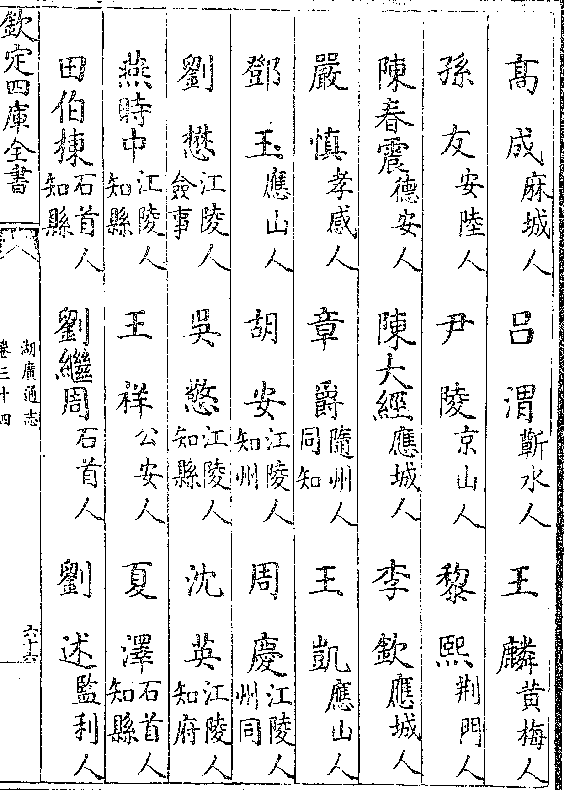 高成麻城人　呂渭蘄水人　王麟黄梅人
孫友安陸人　尹陵京山人　黎熙荆門人
陳春震德安人　陳大經應城人　李欽應城人
嚴慎孝感人　章爵隨州人同知　王凱應山人
鄧玉應山人　胡安江陵人知州　周慶江陵人州同
劉懋江陵人僉事　吳慗江陵人知縣　沈英江陵人知府
燕時中江陵人知縣　王祥公安人　夏澤石首人知縣
田伯棟石首人知縣　劉繼周石首人　劉述監利人
欽定四庫全書　湖廣通志卷三十四　六十六